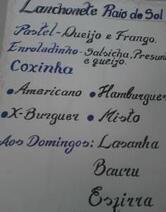 Lanchonete Raio do Sol
Pastel-Queijo e Frango.
Enroladinho-Salsicha, Presun
e queijo.
Coxinha
• Americano • Hamburguer
• X-Burguer • Misto
Aos Domingos: Lasanha
Bauru
Esfirra